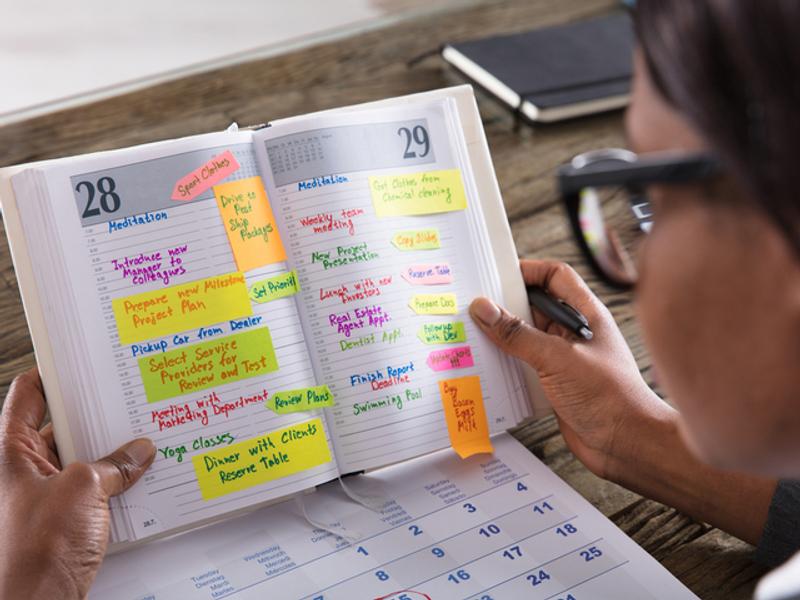 28
Sport Clothes
Meditation
Drive to
Post
Ship
Packages
Introduce new
Manager to
colleagues
Prepare new Milestone
Project Plan
Set Priority
Pickup Car from Dealer
Select Service
Providers for
Review and Test
Meeting with
Marketing Department
Review Plans
Yoga Classes
Dinner with Clients
Reserve Table
28.7.
29
Meditation
Get Clothes from
Chemical cleaning
Weekly team
meeting
Copy Slides
New Project
Presentation
Reserve Table
Lunch with new
Investors
Prepare Docs
Real Estate
Agent Appt.
Followup
with Dev
Dentist Appt.
Finish Report
Deadline
Buy
Bacon
Eggs
Milk
Swimming Pool
29.7.
Tuesday
Dienstag
Martes
Mardi
Wednesday
Mittwoch
Miércoles
Mercredi
Saturday
Samstag
Sábado
Samedi
Sunday
Sonntag
Domingo
Dimanche
1 2 3 4
8 9 10 11
15 16 17 18
24 25